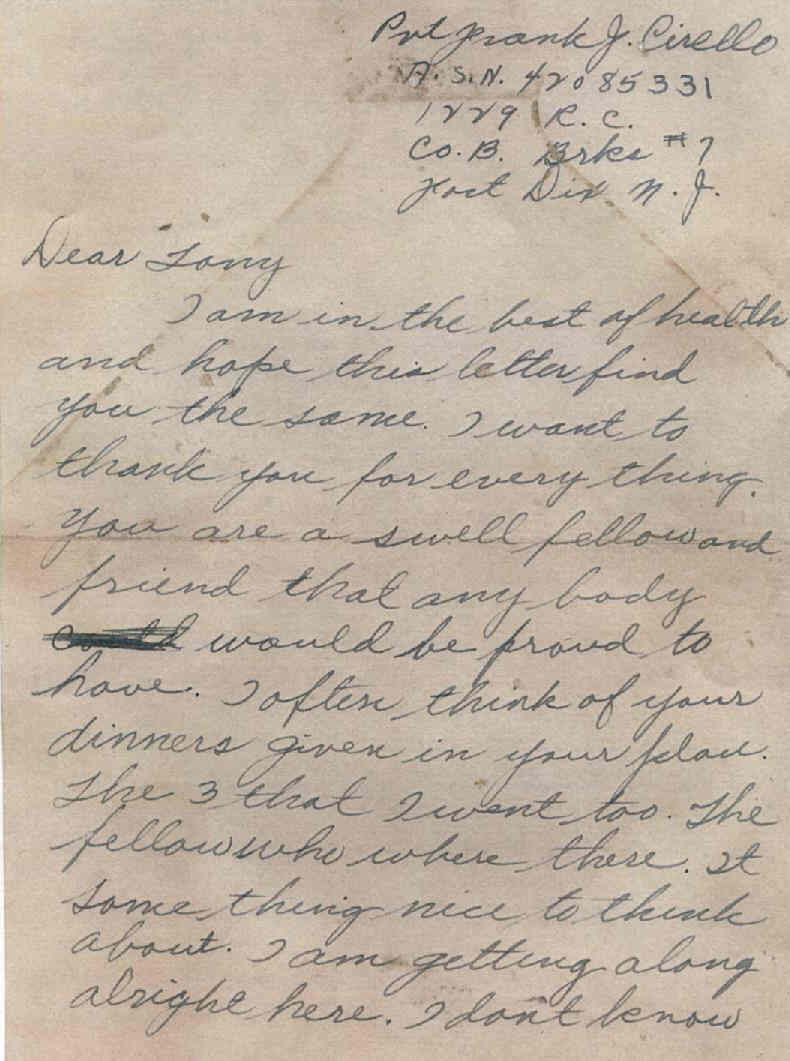 Pvt Frank J. Cirello
A. S. N. 42085331
1229 R. C.
Co. B. Brks #7
Fort Dix N. J.
Dear Tony
I am in the best of health
and hope this letter find
you the same. I want to
thank you for every thing.
You are a swell fellow and
friend that any body
could would be proud to
have. I often think of your
dinners given in your place.
The 3 that I went too. The
fellow who where there. It
some thing nice to think
about. I am getting along
alright here. I don't know